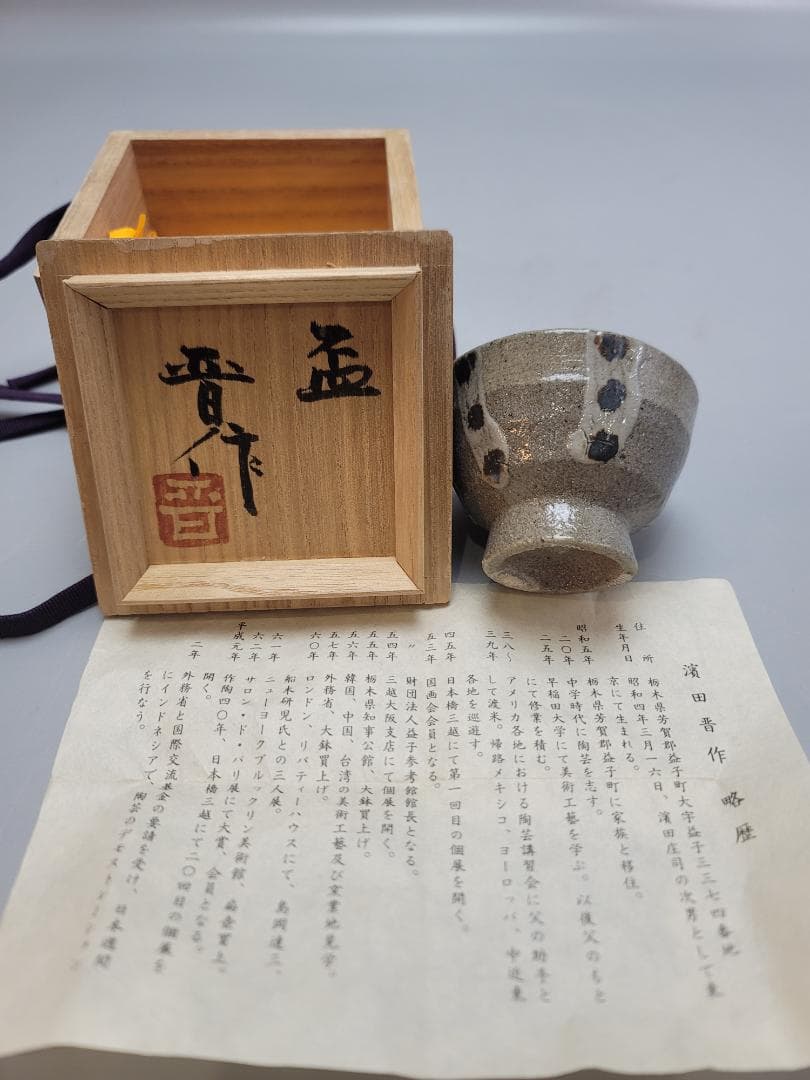 盃
晋作
晋
濱田晋作 略歴
住所 栃木県芳賀郡益子町大字益子三三七四番地
生年月日 昭和四年三月一六日、濱田庄司の次男として東
京にて生まれる。
昭和五年 栃木県芳賀郡益子町に家族と移住。
二〇年 中学時代に陶芸を志す。
二五年 早稲田大学にて美術工藝を学ぶ。以後父のもと
にて修業を積む。
三八〜 アメリカ各地における陶芸講習会に父の助手と
三九年 して渡米。帰路メキシコ、ヨーロッパ、中近東
各地を巡遊す。
四五年 日本橋三越にて第一回目の個展を開く。
五三年 国画会会員となる。
〃 財団法人益子参考館館長となる。
五四年 三越大阪支店にて個展を開く。
五五年 栃木県知事公館、大鉢買上げ。
五六年 韓国、中国、台湾の美術工藝及び窯業地見学。
五七年 外務省、大鉢買上げ。
六〇年 ロンドン、リバティーハウスにて、島岡達三、
船木研児氏との三人展。
六一年 ニューヨークブルックリン美術館、扁壺買上。
六二年 サロン・ド・パリ展にて大賞、会員となる。
平成元年 作陶四〇年、日本橋三越にて二〇回目の個展を
開く。
二年 外務省と国際交流基金の要請を受け、日本週間
にインドネシアで、陶芸のデモンストレーション
を行なう。